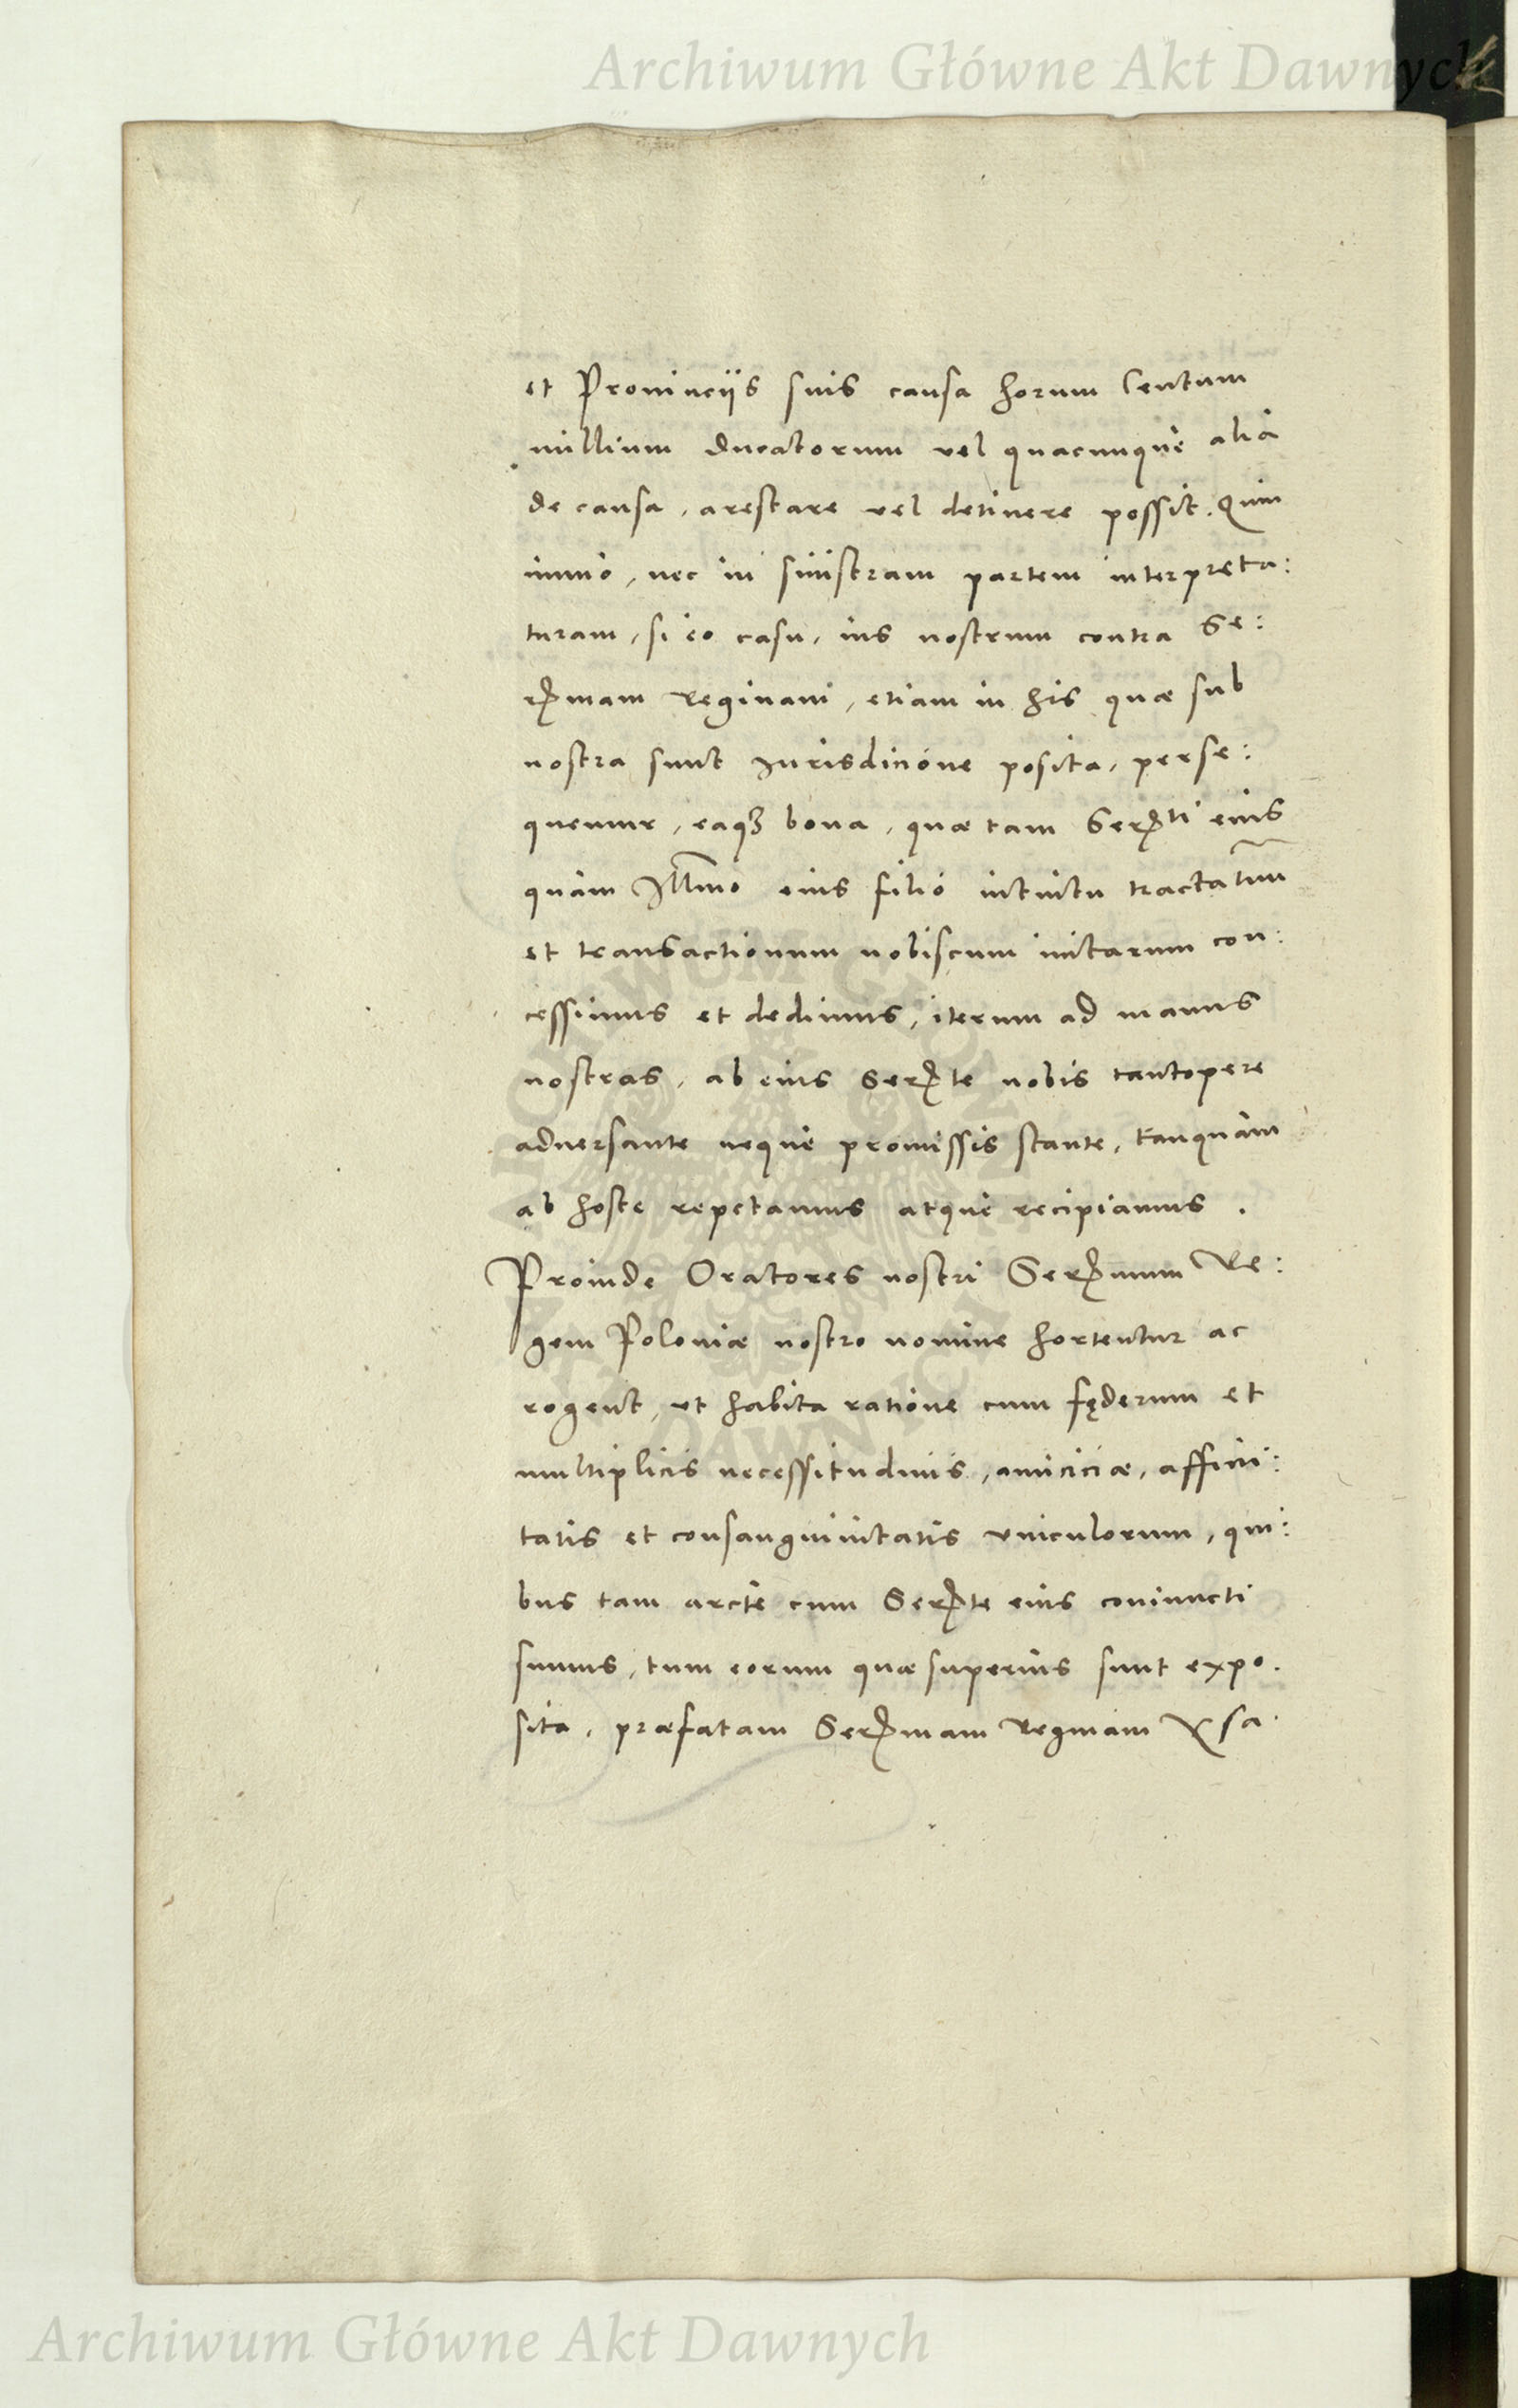 Archiwum Główne Akt Dawnych
et Prouincijs suis causa horum Centum
millium ducatorum vel quacunque alia
de causa, arestare vel detinere possit. Quin
immò, nec in sinistram partem interpreta:
turam, si eo casu, ius nostrum contra Se:
r[enissi]mam Reginam, etiam in his quæ sub
nostra sunt Jurisdictióne posita, perse:
quemur, eaq[ue] bona, quæ tam Ser[enita]ti eius
quàm Ill[ustrissi]mo eius filio intuitu tractatuum
et transactionum nobiscum initarum con:
cessimus et dedimus, iterum ad manus
nostras, ab eius Ser[enita]te nobis tantopere
aduersante neque promissis stante, tanquàm
ab hoste repetamus atque recipiamus.
Proinde Oratores nostri Ser[enissi]mum Re:
gem Poloniæ nostro nomine hortentur ac
rogent, vt habita ratione cum fęderum et
multiplicis necessitudinis, amiciciæ, affini:
tatis et consanguinitatis vinculorum, qui:
bus tam arctè cum Ser[enita]te eius coniuncti
sumus, tum eorum quæ superius sunt expo.
sita, præfatam Ser[enissi]mam Reginam
ARCHIWUM GŁÓWNE AKT DAWNYCH
Archiwum Główne Akt Dawnych